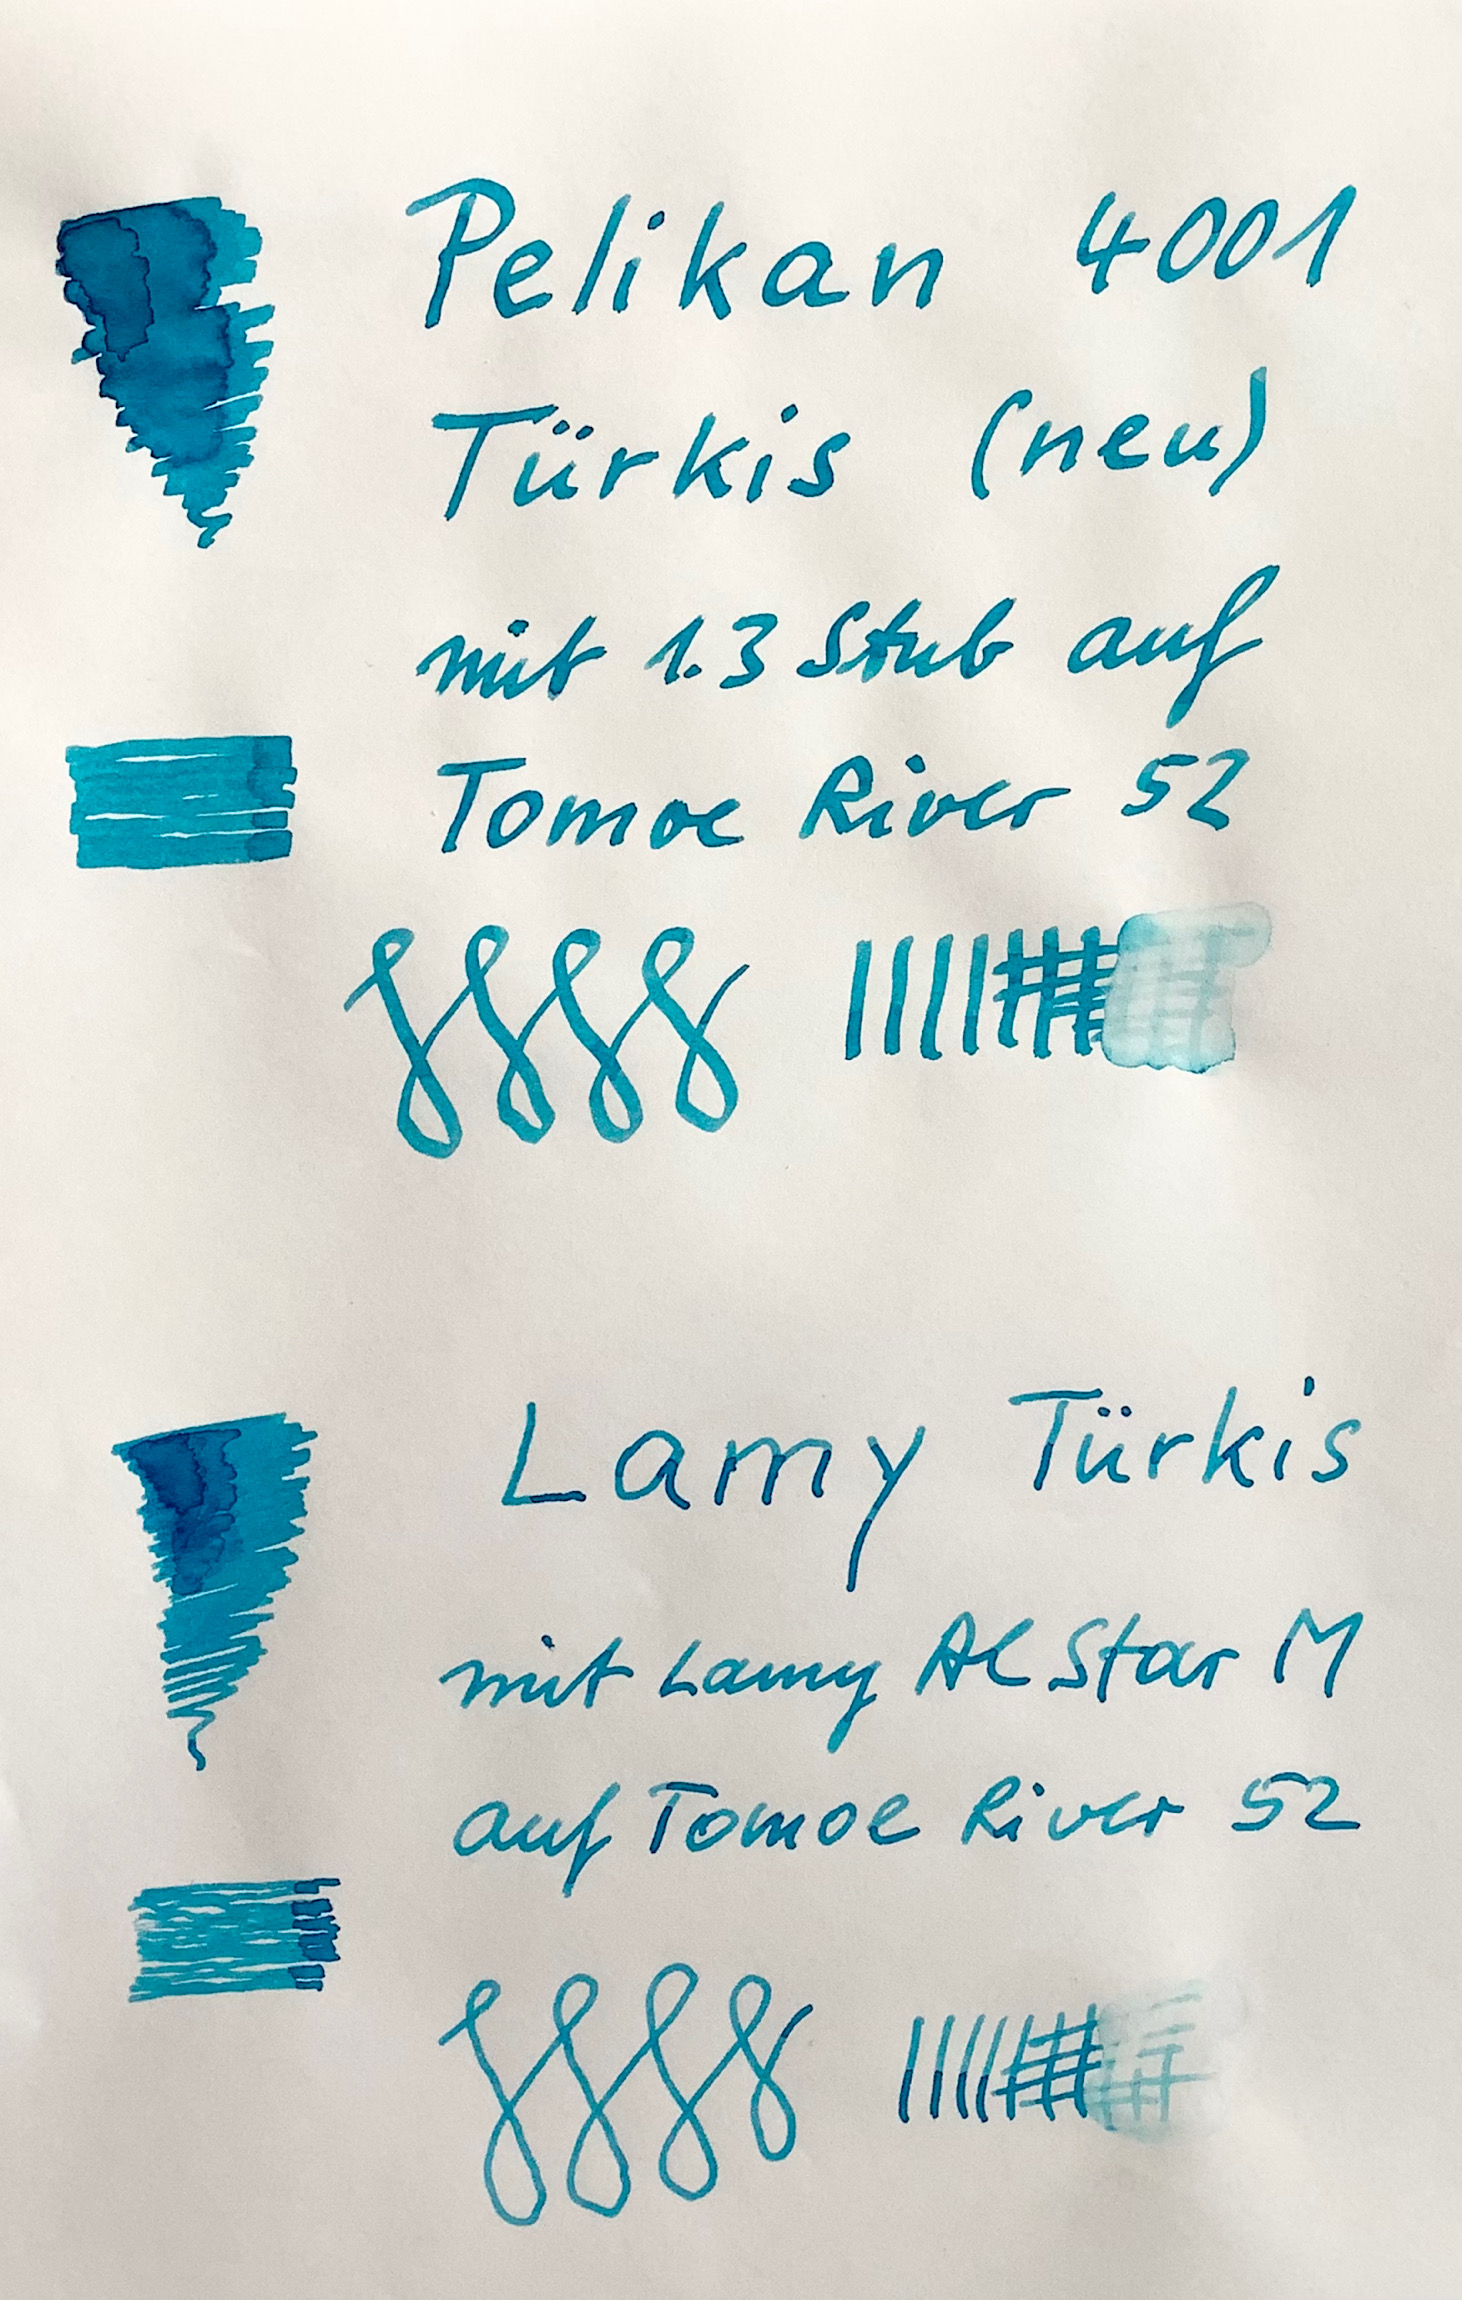 Pelikan 4001
Türkis (neu)
mit 1.3 Stub auf
Tomoe River 52
Lamy Türkis
mit Lamy Al Star M
auf Tomoe River 52